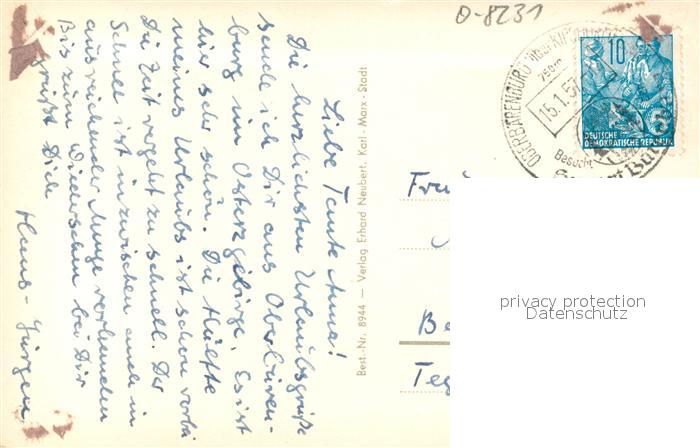 O-8231
OBERBÄRENBURG über KIPSDORF
750m
15.1.57
Besucht
10
DEUTSCHE
DEMOKRATISCHE REPUBLIK
Liebe Tante Anna!
Die herzlichsten Urlaubsgrüße
sende ich Dir aus Oberbären-
burg im Osterzgebirge. Es ist
hier sehr schön. Die Hälfte
meines Urlaubs ist schon vorbei
Die Zeit vergeht zu schnell. Der
Schnee ist inzwischen auch in
ausreichender Menge vorhanden
Bis zum Wiedersehen bei Dir
grüßt Dich
Hans-Jürgen
Best.-Nr. 8944 — Verlag Erhard Neubert, Karl-Marx-Stadt
Be
Teg
privacy protection
Datenschutz